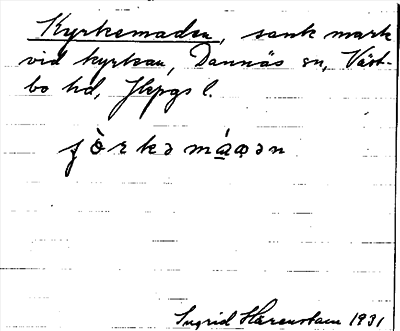 Kyrkemaden, sank mark
vid kyrkan, Dannäs sn, Väst-
bo hd, Jkpgs l.
Ingrid Härenstam 1931